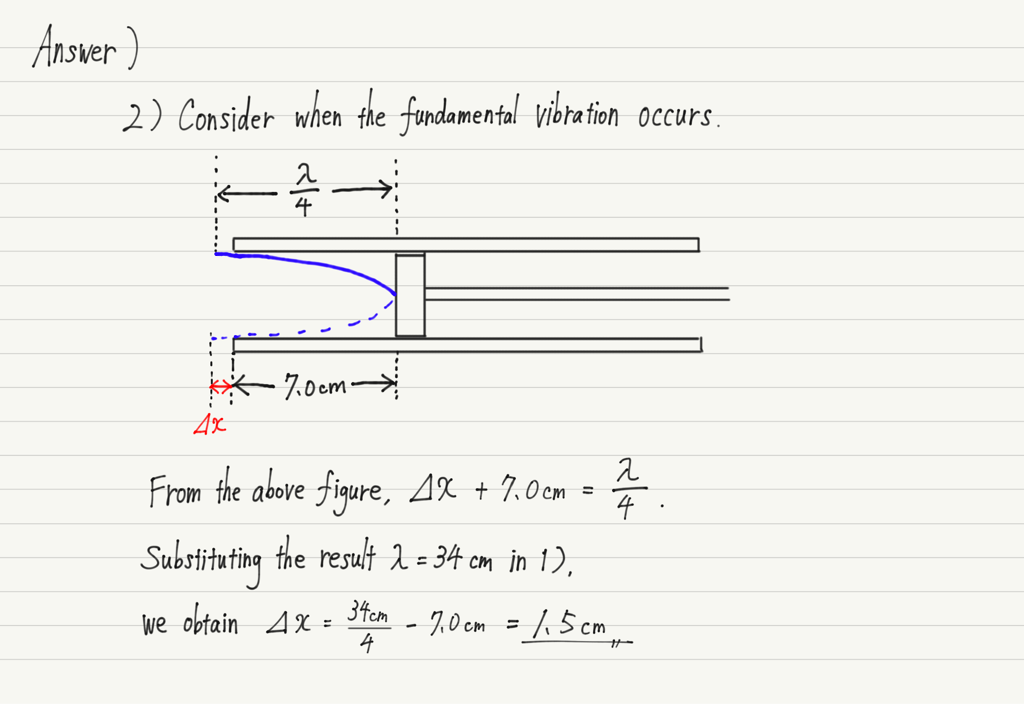 Answer)
2) Consider when the fundamental vibration occurs.
λ/4
7.0cm
Δx
From the above figure, Δx + 7.0cm = λ/4.
Substituting the result λ = 34 cm in 1),
we obtain Δx = 34cm/4 - 7.0cm = 1.5cm